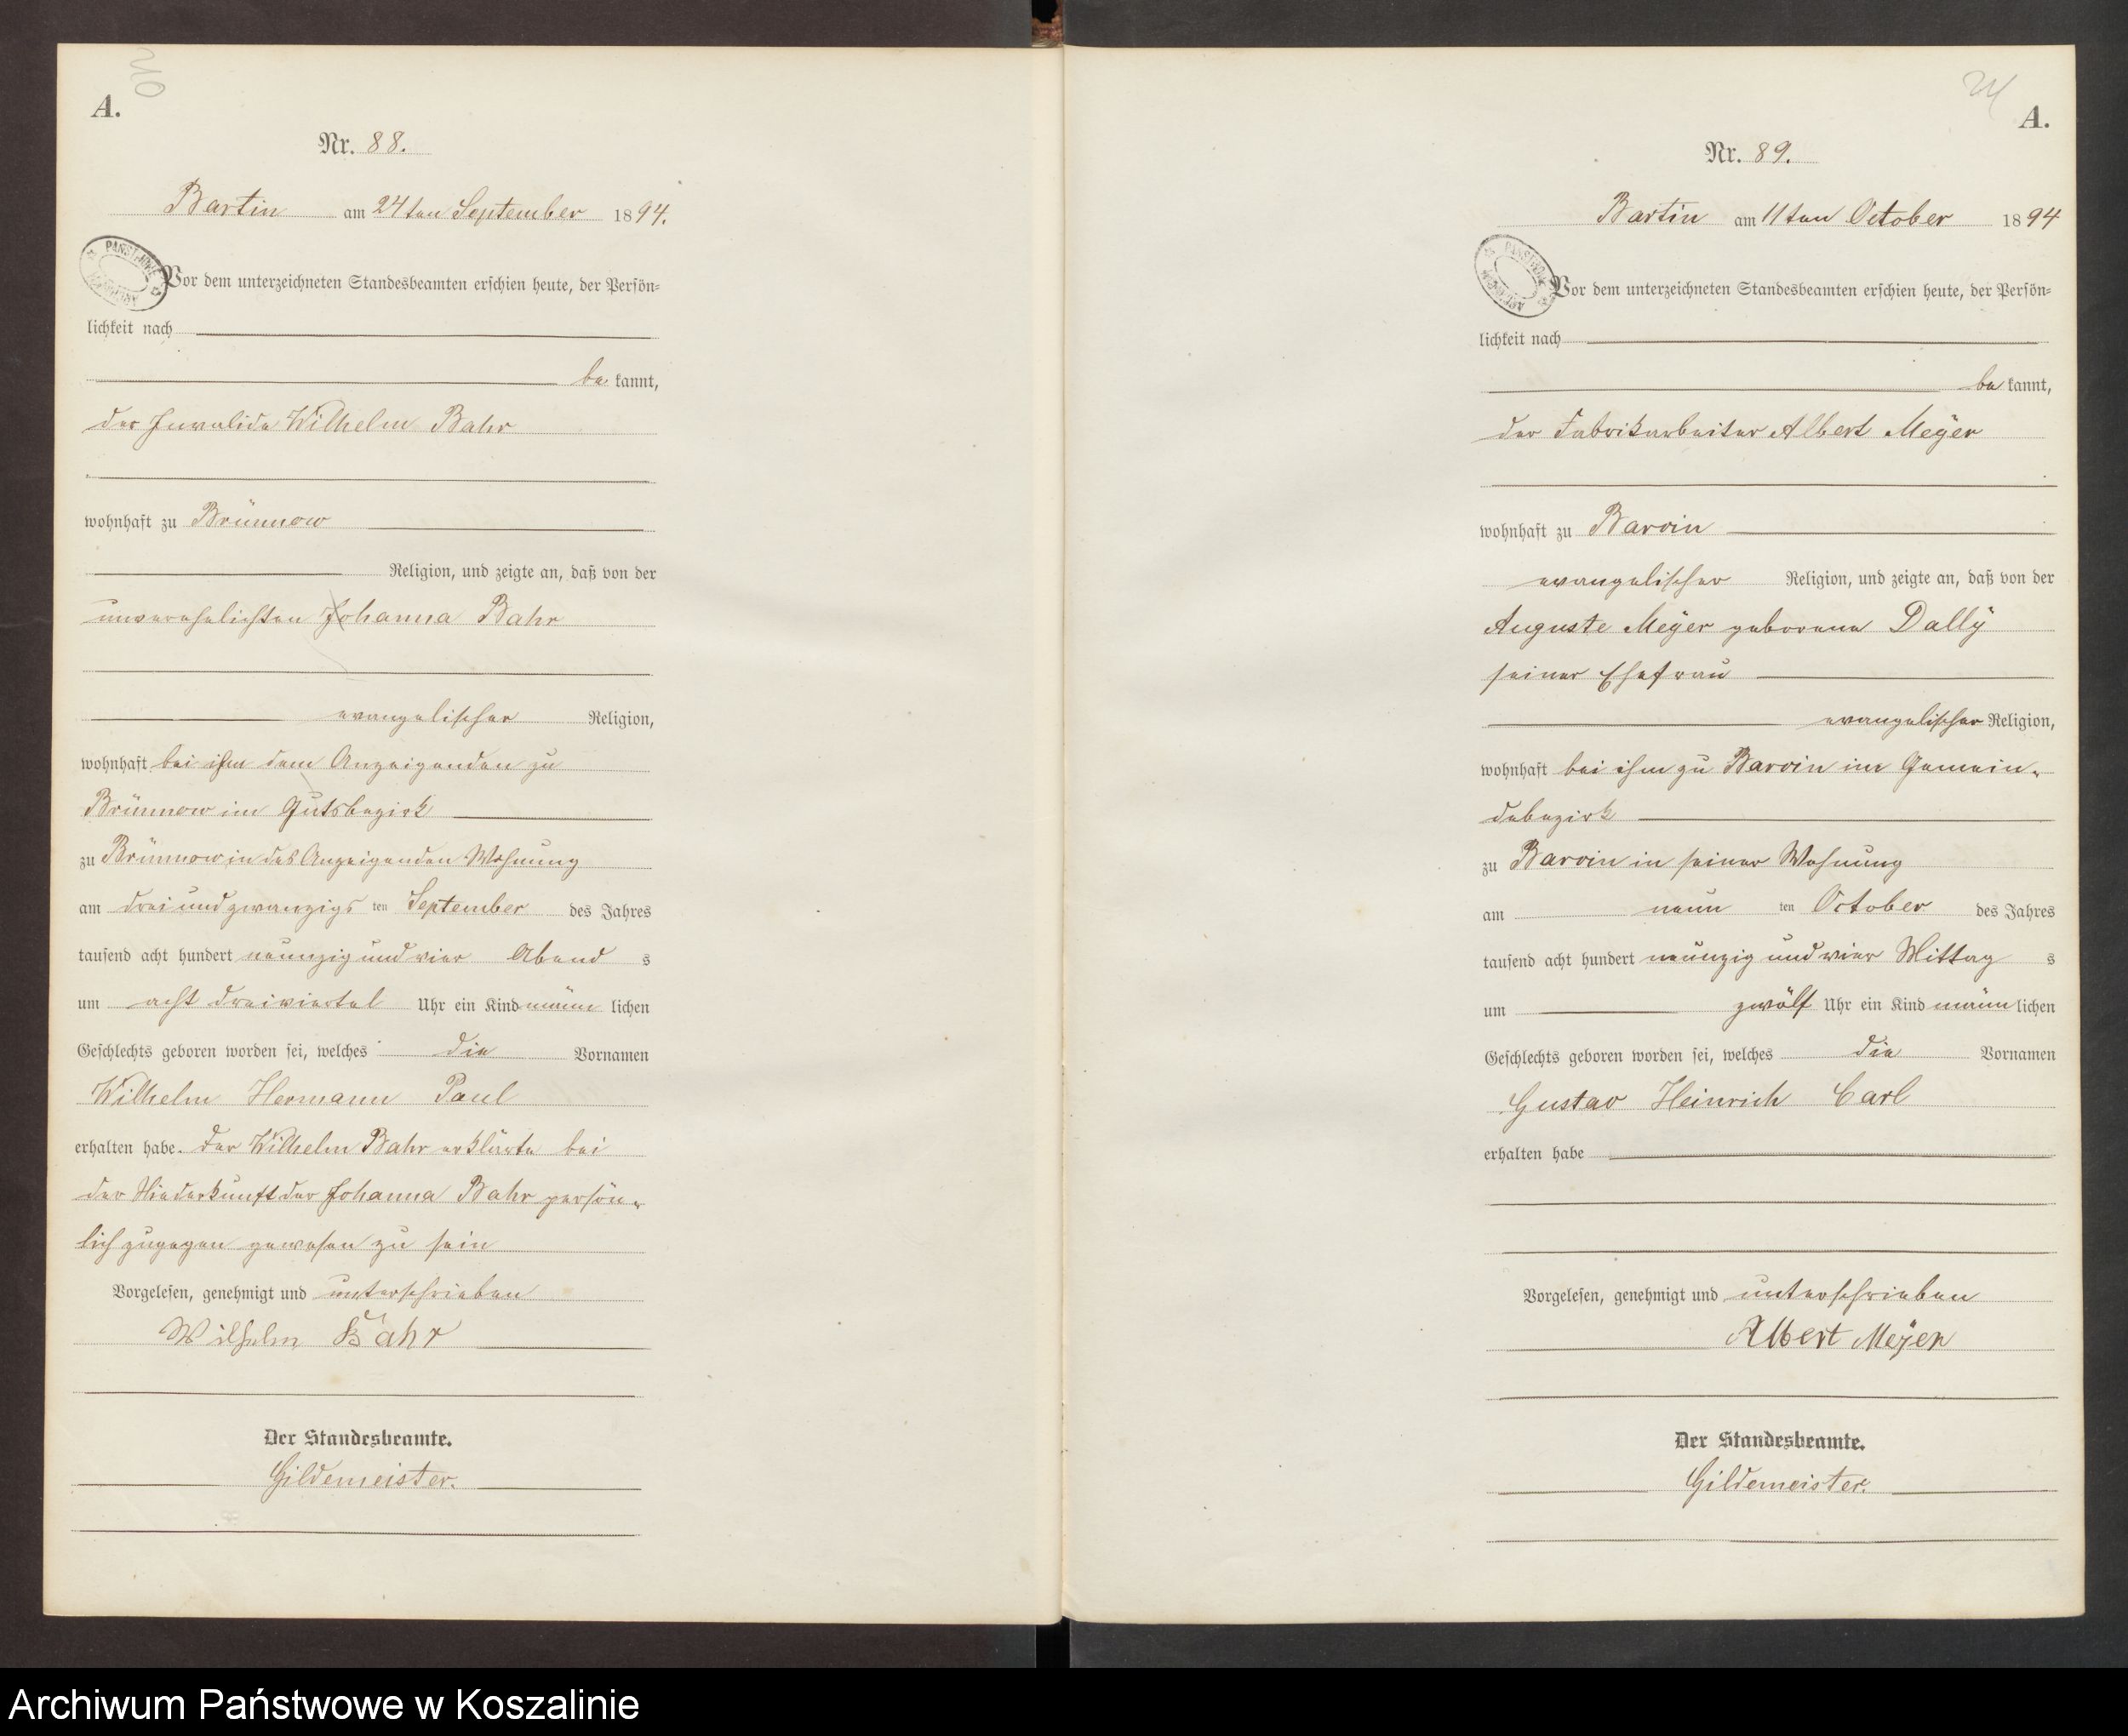 A.
Nr. 88.
Bartin am 24ten September 1894.
Vor dem unterzeichneten Standesbeamten erschien heute, der Persön=
lichkeit nach
be kannt,
der Invalide Wilhelm Bahr
wohnhaft zu Brünnow
Religion, und zeigte an, daß von der
unverehelichten Johanna Bahr
evangelischer Religion,
wohnhaft bei ihm dem Anzeigenden zu
Brünnow im Gutsbezirk
zu Brünnow in des Anzeigenden Wohnung
am dreiundzwanzigs ten September des Jahres
tausend acht hundert neunzig und vier Abend s
um acht dreiviertel Uhr ein Kind männ lichen
Geschlechts geboren worden sei, welches die Vornamen
Wilhelm Hermann Paul
erhalten habe. Der Wilhelm Bahr erklärte bei
der Niederkunft der Johanna Bahr persön=
lich zugegen gewesen zu sein
Vorgelesen, genehmigt und unterschrieben
Wilhelm Bahr
Der Standesbeamte.
Gildemeister.
A.
Nr. 89.
Bartin am 11ten October 1894
Vor dem unterzeichneten Standesbeamten erschien heute, der Persön=
lichkeit nach
be kannt,
der Fabrikarbeiter Albert Meÿer
wohnhaft zu Barvin
evangelischer Religion, und zeigte an, daß von der
Auguste Meÿer geborene Dallÿ
seiner Ehefrau
evangelischer Religion,
wohnhaft bei ihm zu Barvin im Gemein=
debezirk
zu Barvin in seiner Wohnung
am neun ten October des Jahres
tausend acht hundert neunzig und vier Mittag s
um zwölf Uhr ein Kind männ lichen
Geschlechts geboren worden sei, welches die Vornamen
Gustav Heinrich Carl
erhalten habe
Vorgelesen, genehmigt und unterschrieben
Albert Meÿer
Der Standesbeamte.
Gildemeister.
Archiwum Państwowe w Koszalinie